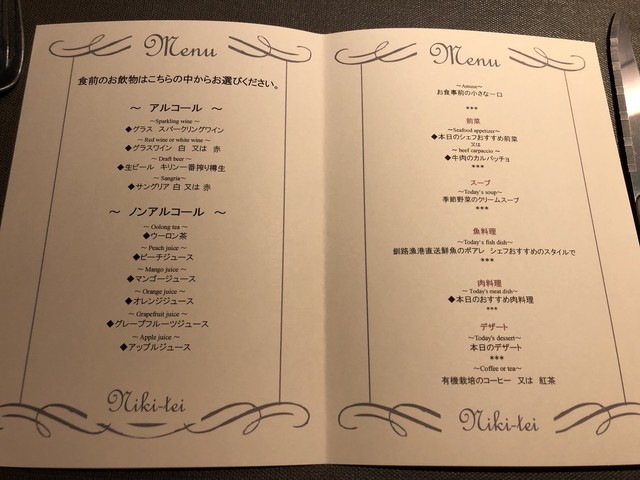 Menu
食前のお飲物はこちらの中からお選びください。
～ アルコール ～
～Sparkling wine～
◆グラス スパークリングワイン
～Red wine or white wine～
◆グラスワイン 白 又は 赤
～Draft beer～
◆生ビール キリン一番搾り樽生
～Sangria～
◆サングリア 白 又は 赤
～ ノンアルコール ～
～Oolong tea～
◆ウーロン茶
～Peach juice～
◆ピーチジュース
～Mango juice～
◆マンゴージュース
～Orange juice～
◆オレンジジュース
～Grapefruit juice～
◆グレープフルーツジュース
～Apple juice～
◆アップルジュース
Niki-tei
Menu
～Amuse～
お食事前の小さな一口
***
前菜
～Seafood appetizer～
◆本日のシェフおすすめ前菜
又は
～beef carpaccio～
◆牛肉のカルパッチョ
***
スープ
～Today's soup～
季節野菜のクリームスープ
***
魚料理
～Today's fish dish～
釧路漁港直送鮮魚のポアレ シェフおすすめのスタイルで
***
肉料理
～Today's meat dish～
◆本日のおすすめ肉料理
***
デザート
～Today's dessert～
本日のデザート
***
～Coffee or tea～
有機栽培のコーヒー 又は 紅茶
Niki-tei